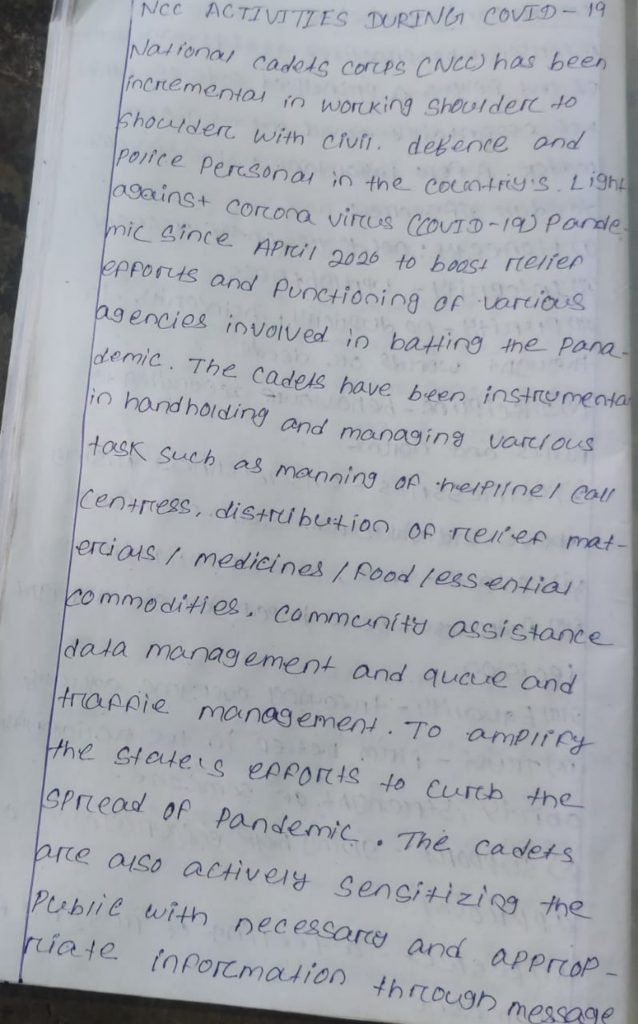 NCC ACTIVITIES DURING COVID-19
National cadets corps (NCC) has been
incremental in working shoulder to
shoulder with civil. defence and
police personal in the country's. Light
against corona virus (COVID-19) Pande-
mic since April 2020 to boost relief
efforts and functioning of various
agencies involved in batting the pana-
demic. The cadets have been instrumenta
in handholding and managing various
task such as manning of helpline/call
centress, distribution of relief mat-
erials / medicines / food / essential
commodities, community assistance
data management and queue and
traffic management. To amplify
the state's efforts to curb the
spread of pandemic. The cadets
are also actively sensitizing the
public with necessary and approp-
riate information through message